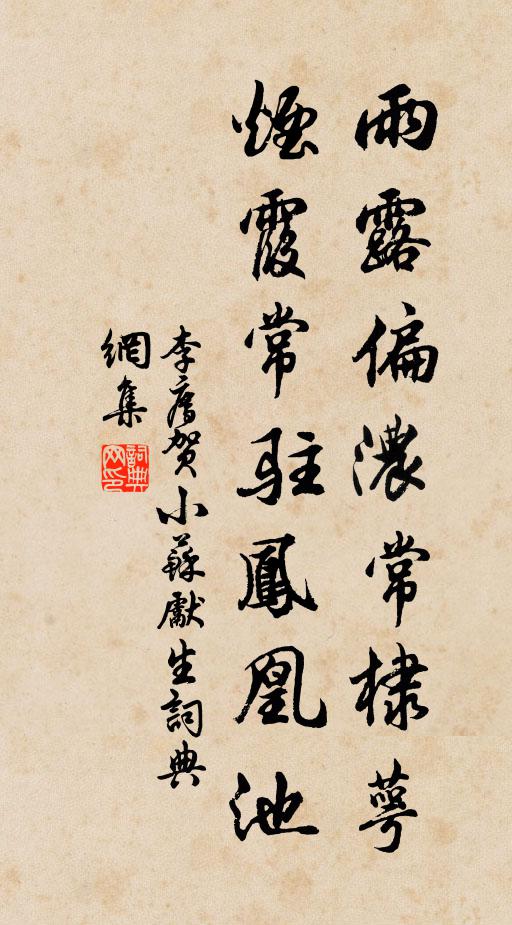 雨露偏濃常棣萼
煙霞常駐鳳凰池
李廌賀小蘇獻生詞典
網集
詞典網印